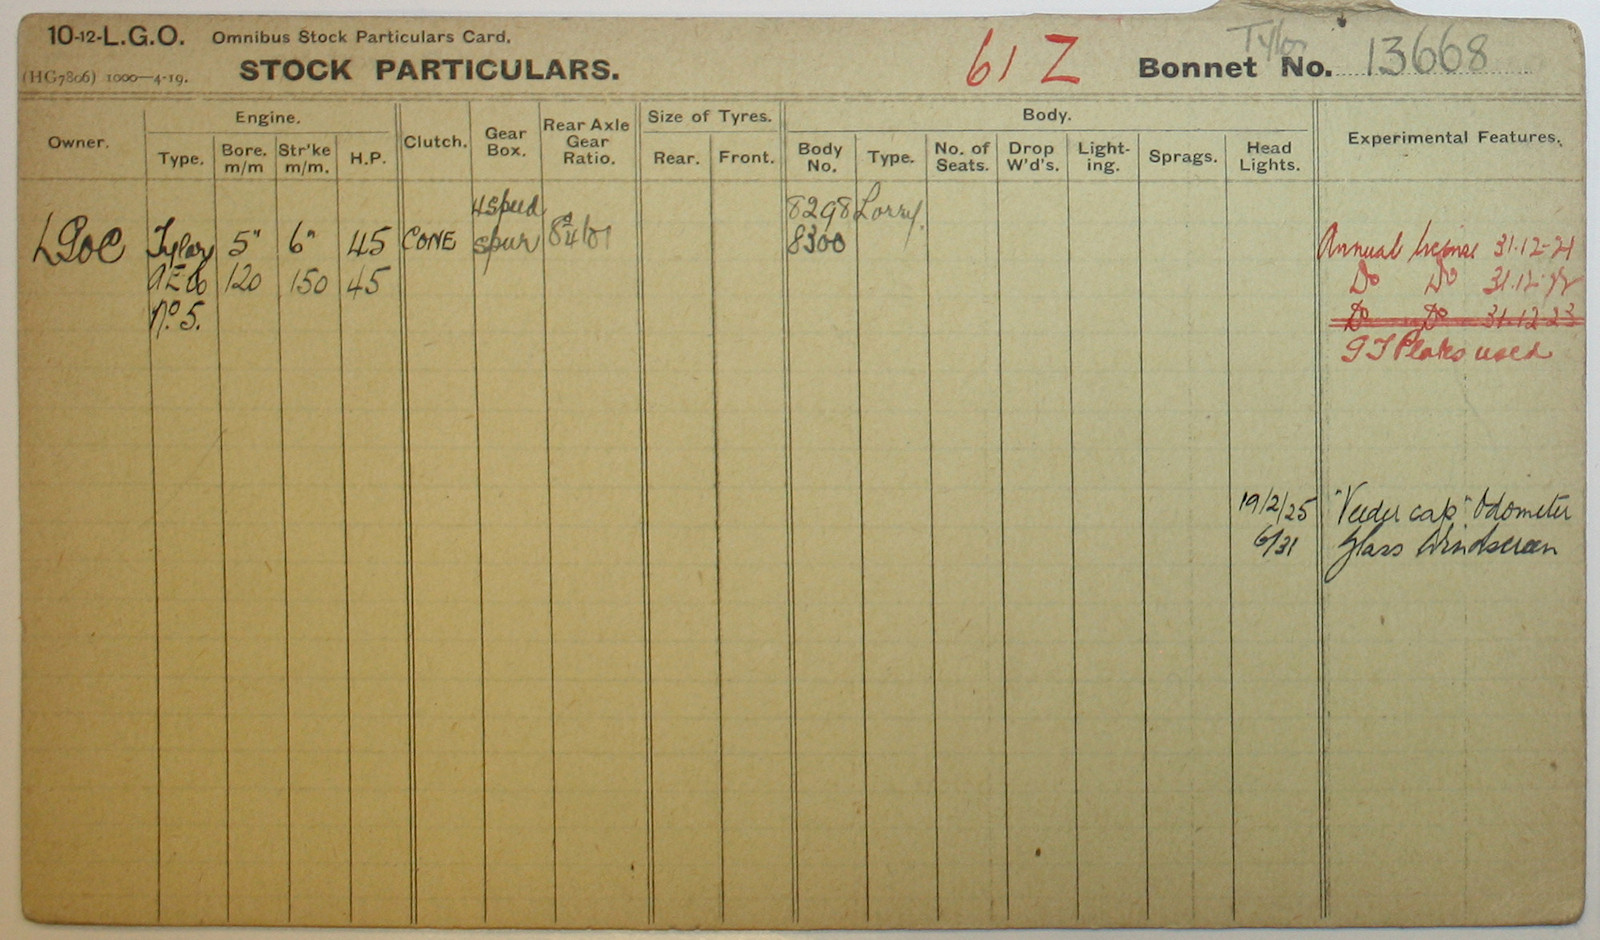 10-12-L.G.O. Omnibus Stock Particulars Card.
(HG7806) 1000—4-19. STOCK PARTICULARS. 61 Z Tylor Bonnet No. 13668
Owner. Engine. Clutch. Gear Box. Rear Axle Gear Ratio. Size of Tyres. Body. Experimental Features.
Type. Bore. m/m Str'ke m/m. H.P. Rear. Front. Body No. Type. No. of Seats. Drop W'd's. Light-ing. Sprags. Head Lights.
4 speed 8298 Lorry.
LGOC Tylor 5" 6" 45 CONE spur 8300 Annual license 31-12-21
AEC 120 150 45 Do Do 31.12.22
No. 5. Do Do 31.12.23
GT Plates used
19/2/25 "Veeder cap" Odometer
6/31 Glass Windscreen